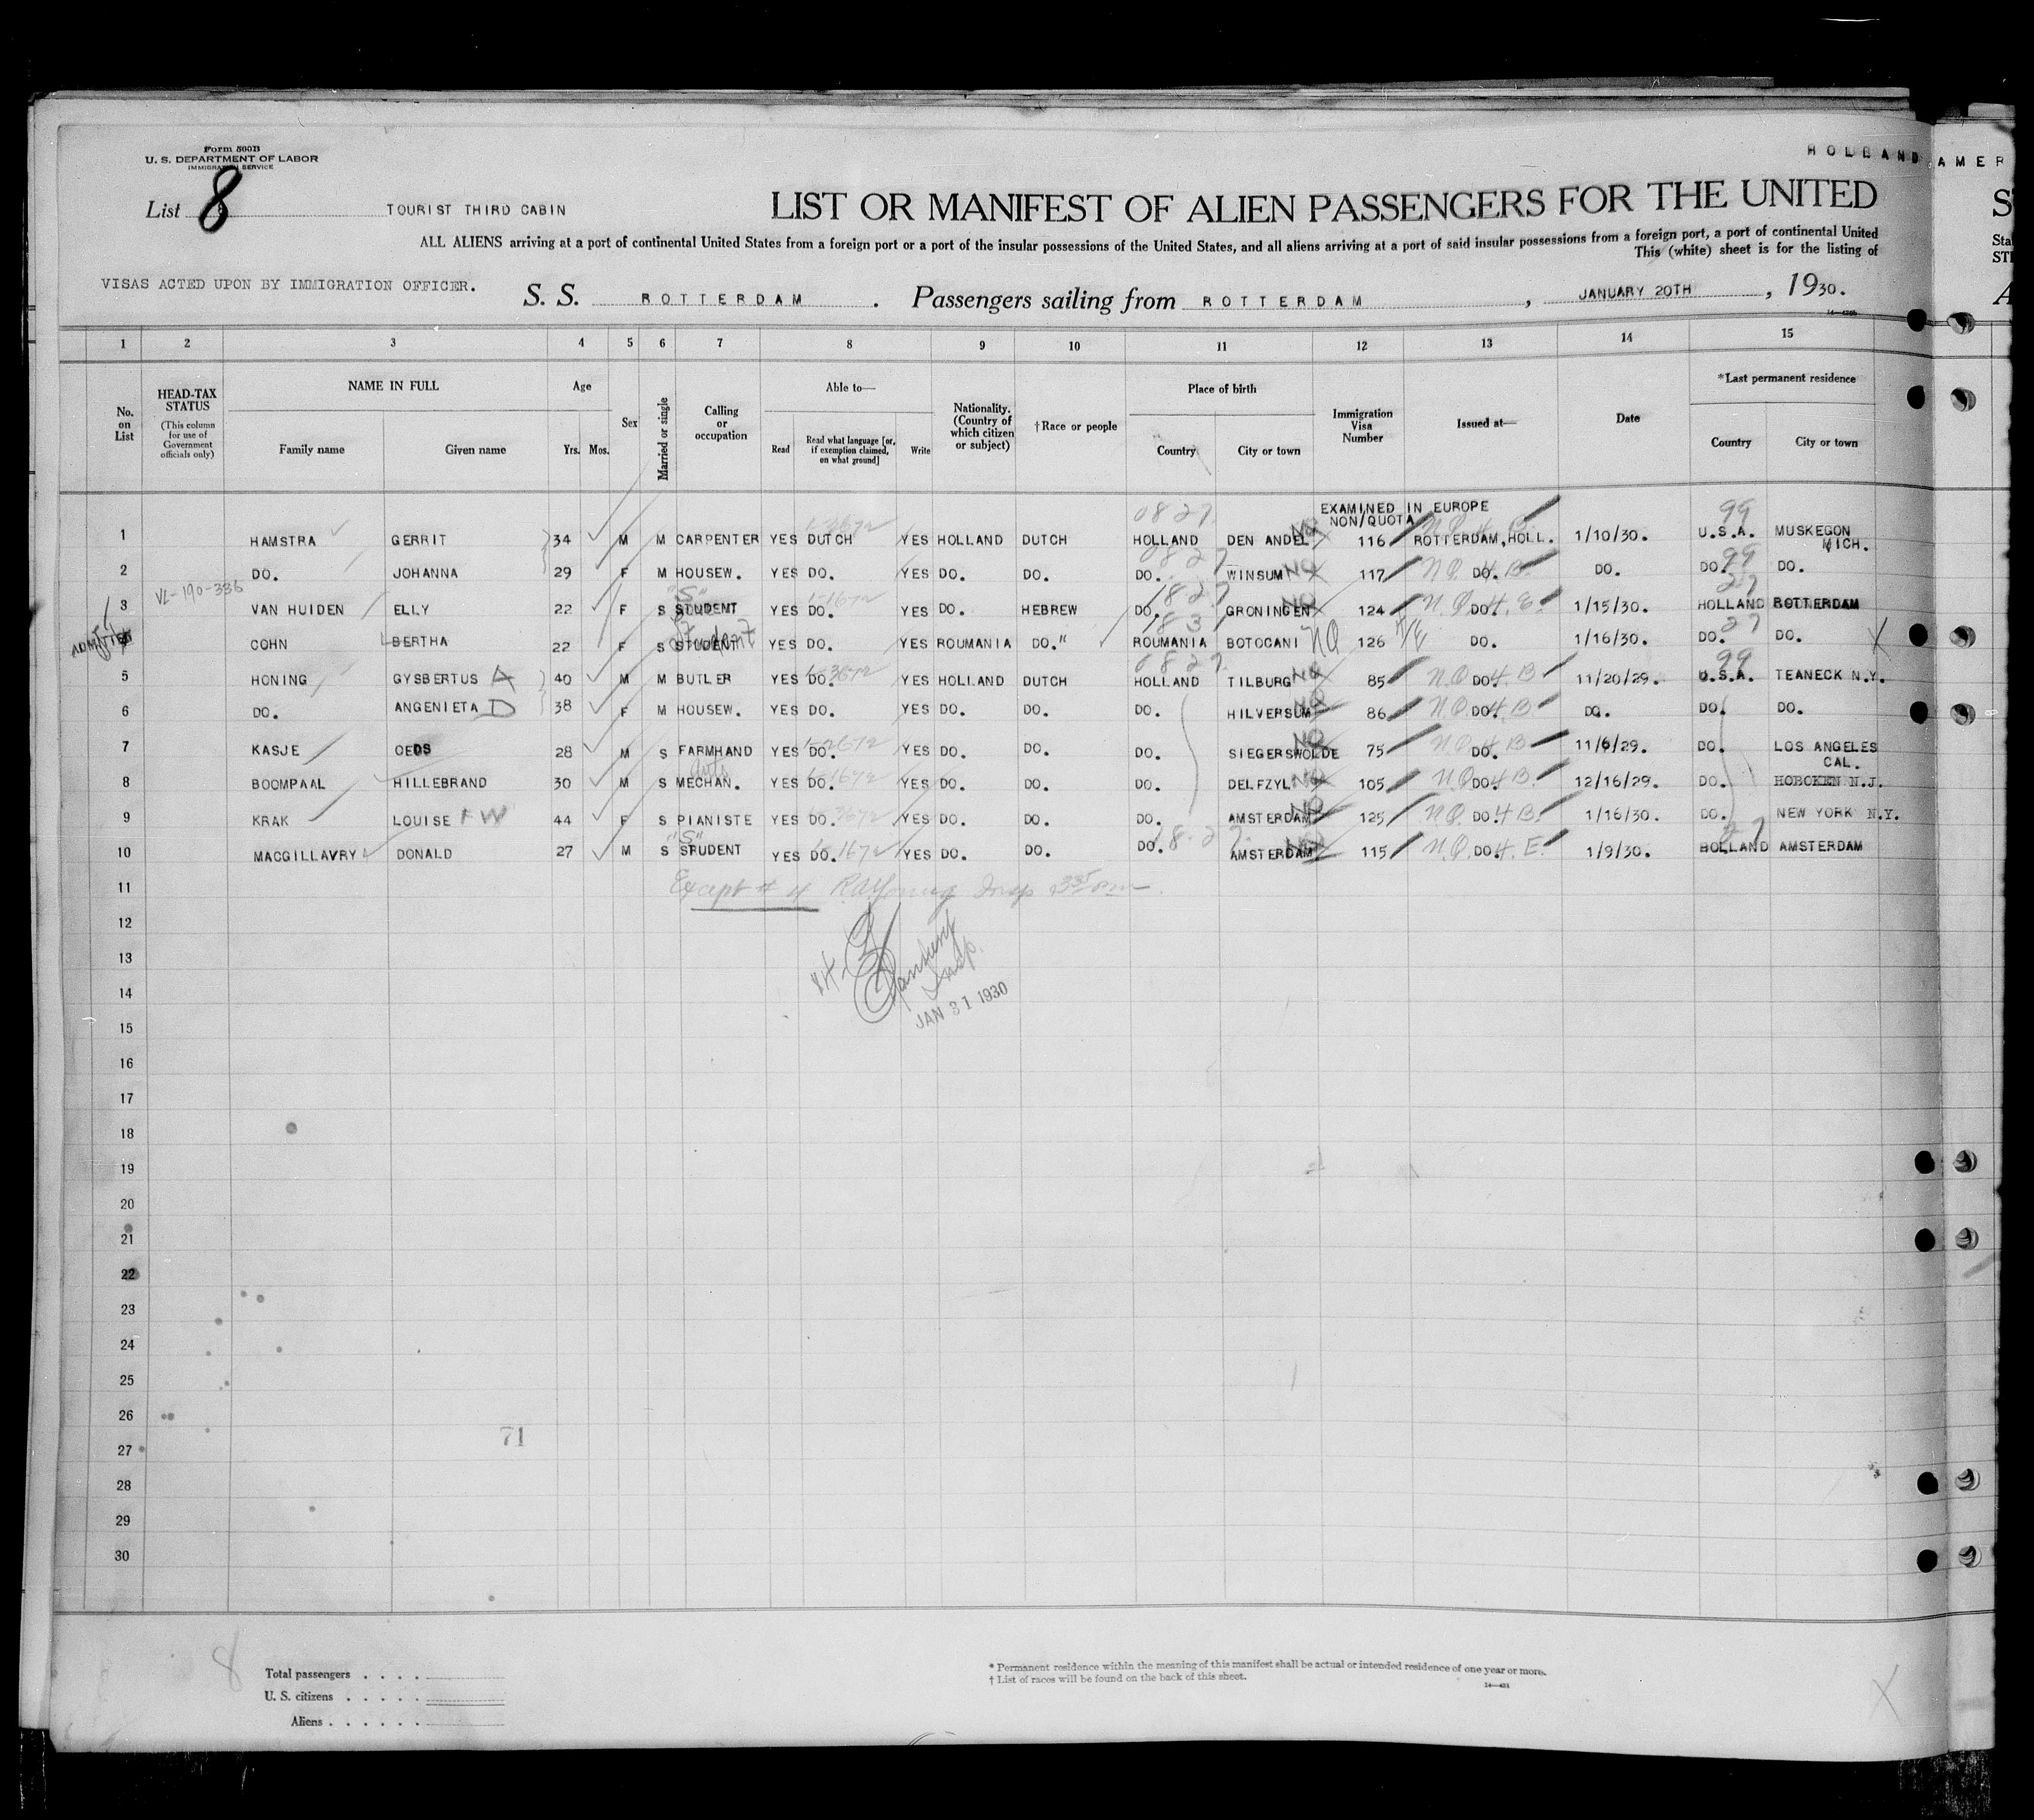 Form 500B
U. S. DEPARTMENT OF LABOR
IMMIGRATION SERVICE
HOLLAND AMER
List 8 TOURIST THIRD CABIN
LIST OR MANIFEST OF ALIEN PASSENGERS FOR THE UNITED
ALL ALIENS arriving at a port of continental United States from a foreign port or a port of the insular possessions of the United States, and all aliens arriving at a port of said insular possessions from a foreign port, a port of continental United
This (white) sheet is for the listing of
VISAS ACTED UPON BY IMMIGRATION OFFICER.
S. S. ROTTERDAM . Passengers sailing from ROTTERDAM , JANUARY 20TH , 1930.
1 2 3 4 5 6 7 8 9 10 11 12 13 14 15
No. on List
HEAD-TAX STATUS (This column for use of Government officials only)
NAME IN FULL Family name Given name
Age Yrs. Mos.
Sex
Married or single
Calling or occupation
Able to— Read Read what language [or, if exemption claimed, on what ground] Write
Nationality. (Country of which citizen or subject)
†Race or people
Place of birth Country City or town
Immigration Visa Number
Issued at—
Date
*Last permanent residence Country City or town
EXAMINED IN EUROPE
NON/QUOTA
0827 99
1 HAMSTRA GERRIT 34 M M CARPENTER YES DUTCH YES HOLLAND DUTCH HOLLAND DEN ANDEL 116 ROTTERDAM, HOLL. 1/10/30. U.S.A. MUSKEGON MICH.
2 DO. JOHANNA 29 F M HOUSEW. YES DO. YES DO. DO. DO. WINSUM 117 DO. DO. DO. DO.
VL-190-336
3 VAN HUIDEN ELLY 22 F S STUDENT YES DO. YES DO. HEBREW DO. GRONINGEN 124 DO. 1/15/30. HOLLAND ROTTERDAM
ADMITTED COHN BERTHA 22 F S STUDENT YES DO. YES ROUMANIA DO." ROUMANIA BOTOCANI NQ 126 DO. 1/16/30. DO. DO.
5 HONING GYSBERTUS A 40 M M BUTLER YES DO. YES HOLLAND DUTCH HOLLAND TILBURG 85 DO. 11/20/29. U.S.A. TEANECK N.Y.
6 DO. ANGENIETA D 38 F M HOUSEW. YES DO. YES DO. DO. DO. HILVERSUM 86 DO. DO. DO. DO.
7 KASJE OEDS 28 M S FARMHAND YES DO. YES DO. DO. DO. SIEGERSWOLDE 75 DO. 11/6/29. DO. LOS ANGELES CAL.
8 BOOMPAAL HILLEBRAND 30 M S MECHAN. YES DO. YES DO. DO. DO. DELFZYL 105 DO. 12/16/29. DO. HOBOKEN N.J.
9 KRAK LOUISE F W 44 F S PIANISTE YES DO. YES DO. DO. DO. AMSTERDAM 125 DO. 1/16/30. DO. NEW YORK N.Y.
10 MACGILLAVRY DONALD 27 M S STUDENT YES DO. YES DO. DO. DO. AMSTERDAM 115 DO. 1/9/30. HOLLAND AMSTERDAM
11 Except # 4
12
13
14
JAN 31 1930
15
16
17
18
19
20
21
22
23
24
25
26
71
27
28
29
30
8
Total passengers . . . .
U. S. citizens . . . . .
Aliens . . . . . .
* Permanent residence within the meaning of this manifest shall be actual or intended residence of one year or more.
† List of races will be found on the back of this sheet.